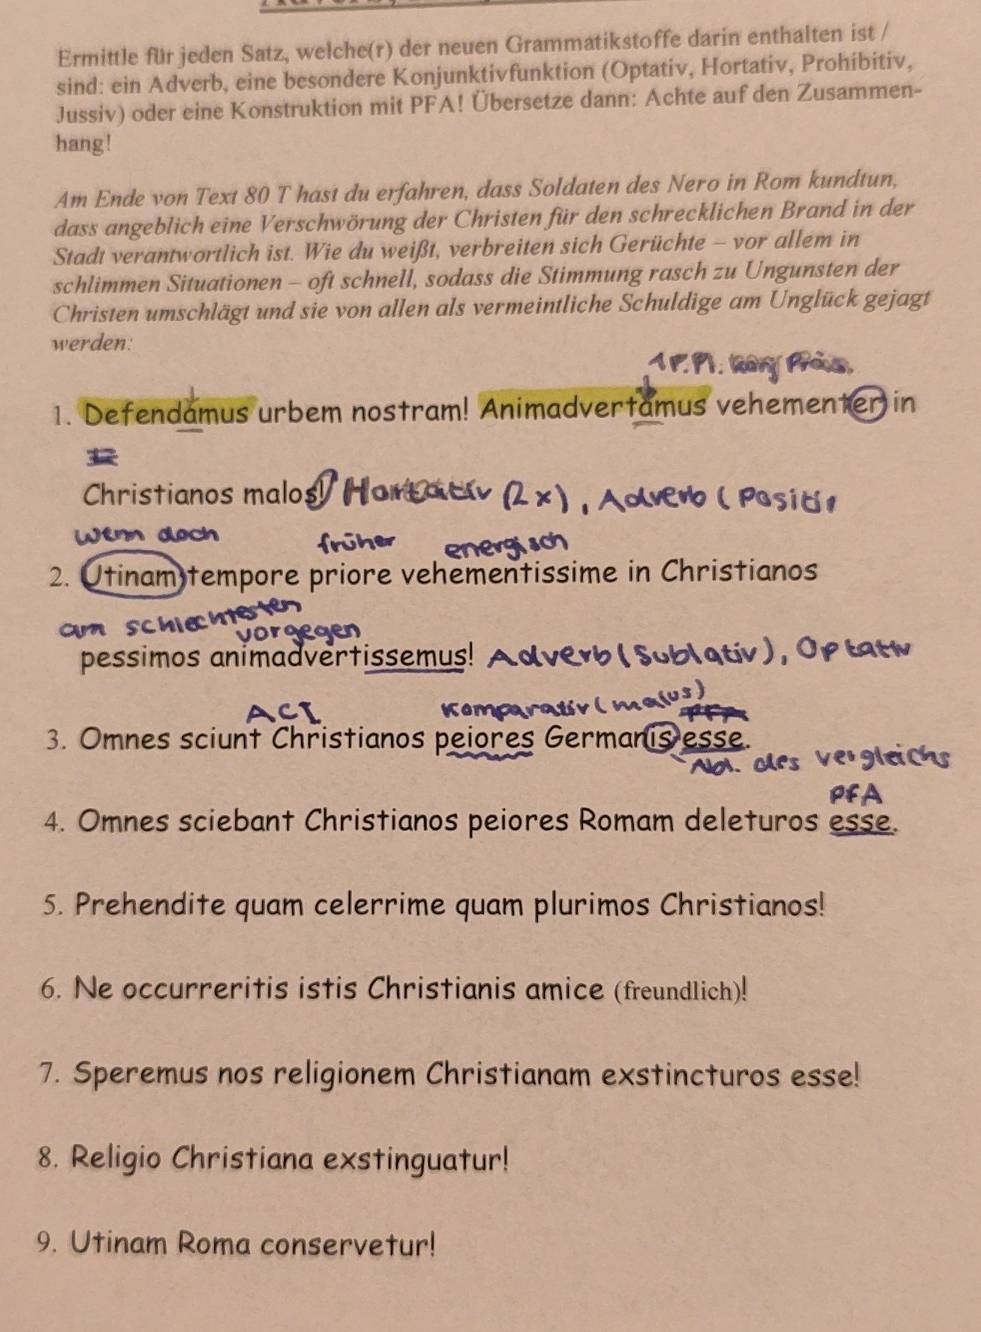 Ermittle für jeden Satz, welche(r) der neuen Grammatikstoffe darin enthalten ist /
sind: ein Adverb, eine besondere Konjunktivfunktion (Optativ, Hortativ, Prohibitiv,
Jussiv) oder eine Konstruktion mit PFA! Übersetze dann: Achte auf den Zusammen-
hang!
Am Ende von Text 80 T hast du erfahren, dass Soldaten des Nero in Rom kundtun,
dass angeblich eine Verschwörung der Christen für den schrecklichen Brand in der
Stadt verantwortlich ist. Wie du weißt, verbreiten sich Gerüchte – vor allem in
schlimmen Situationen – oft schnell, sodass die Stimmung rasch zu Ungunsten der
Christen umschlägt und sie von allen als vermeintliche Schuldige am Unglück gejagt
werden:
1 P. Pl. Konj Präs.
1. Defendamus urbem nostram! Animadvertamus vehementer in
Christianos malos! Hortativ (2x), Adverb (Positiv
wenn doch früher energisch
2. Utinam tempore priore vehementissime in Christianos
am schlechtesten
vorgegen
pessimos animadvertissemus! Adverb (Sublativ), Optativ
ACI Komparativ (malus)
PFA
3. Omnes sciunt Christianos peiores Germanis esse.
Abl. des vergleichs
PfA
4. Omnes sciebant Christianos peiores Romam deleturos esse.
5. Prehendite quam celerrime quam plurimos Christianos!
6. Ne occurreritis istis Christianis amice (freundlich)!
7. Speremus nos religionem Christianam exstincturos esse!
8. Religio Christiana exstinguatur!
9. Utinam Roma conservetur!